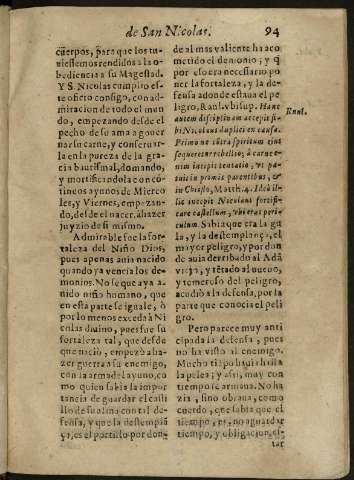 de San Nicolas. 94
cuerpos, para que los tu-
uiessemos rendidos a la o-
bediencia a su Magestad.
Y S. Nicolas cumplio es-
te oficio consigo, con ad-
miracion de todo el mun
do, empezando desde el
pecho de su ama a gouer
nar su carne, y conseruar-
la en la pureza de la gra-
cia bautismal, domando,
y mortificandola con có-
tinuos ayunos de Mierco
les, y Viernes, empezan-
do, desde el nacer, à hazer
juyzio de si mismo.
Admirable fue la for-
taleza del Niño Dios,
pues apenas auia nacido
quando ya vencia los de-
monios. No se que aya a-
uido niño humano, que
en esta parte se iguale, ò
por lo menos exceda à Ni
colas diuino, pues fue su
fortaleza tal, que desde
que nació, empezò a ha-
zer guerra a su enemigo,
con la arma del ayuno, co
mo quien sabia la impor
tancia de guardar el casti
llo de su alma con tal de-
fensa, y que la destemplā
ça, es el portillo por don-
de al mas valiente ha aco
metido el demonio; y q̄
por esso era necessario po
ner la fortaleza, y la de-
fensa adonde estaua el pe
ligro, Raul. vbi sup. Hanc
autem disciplinam accepit sā-
cti Nicolaus duplici ex causa.
Primo ne cōtra spiritum eius
sequeretur rebellio; à carne e-
nim incepit tentatio, vt pa-
tuit in primis parentibus, &
in Christo, Matth. 4. Ideò il-
lic incepit Nicolaus fortifi-
care castellum, vbi erat peri-
culum. Sabia que era la gu
la, y la destemplança, el
mayor peligro, y por don
de auia derribado al Adā
viejo, y tētado al nueuo,
y temeroso del peligro,
acudiò a la defensa, por la
parte que conocia el peli
gro.
Raul.
Pero parece muy anti
cipada la defensa, pues
no ha visto al enemigo.
Mucho tiēpo auia hasta
la pelea; y assi, muy con
tiempo se armaua. No ha
zia, sino obraua, como
cuerdo, que sabia que el
tiempo, es, no aguardar
tiempo, y obligacion, es-
tar